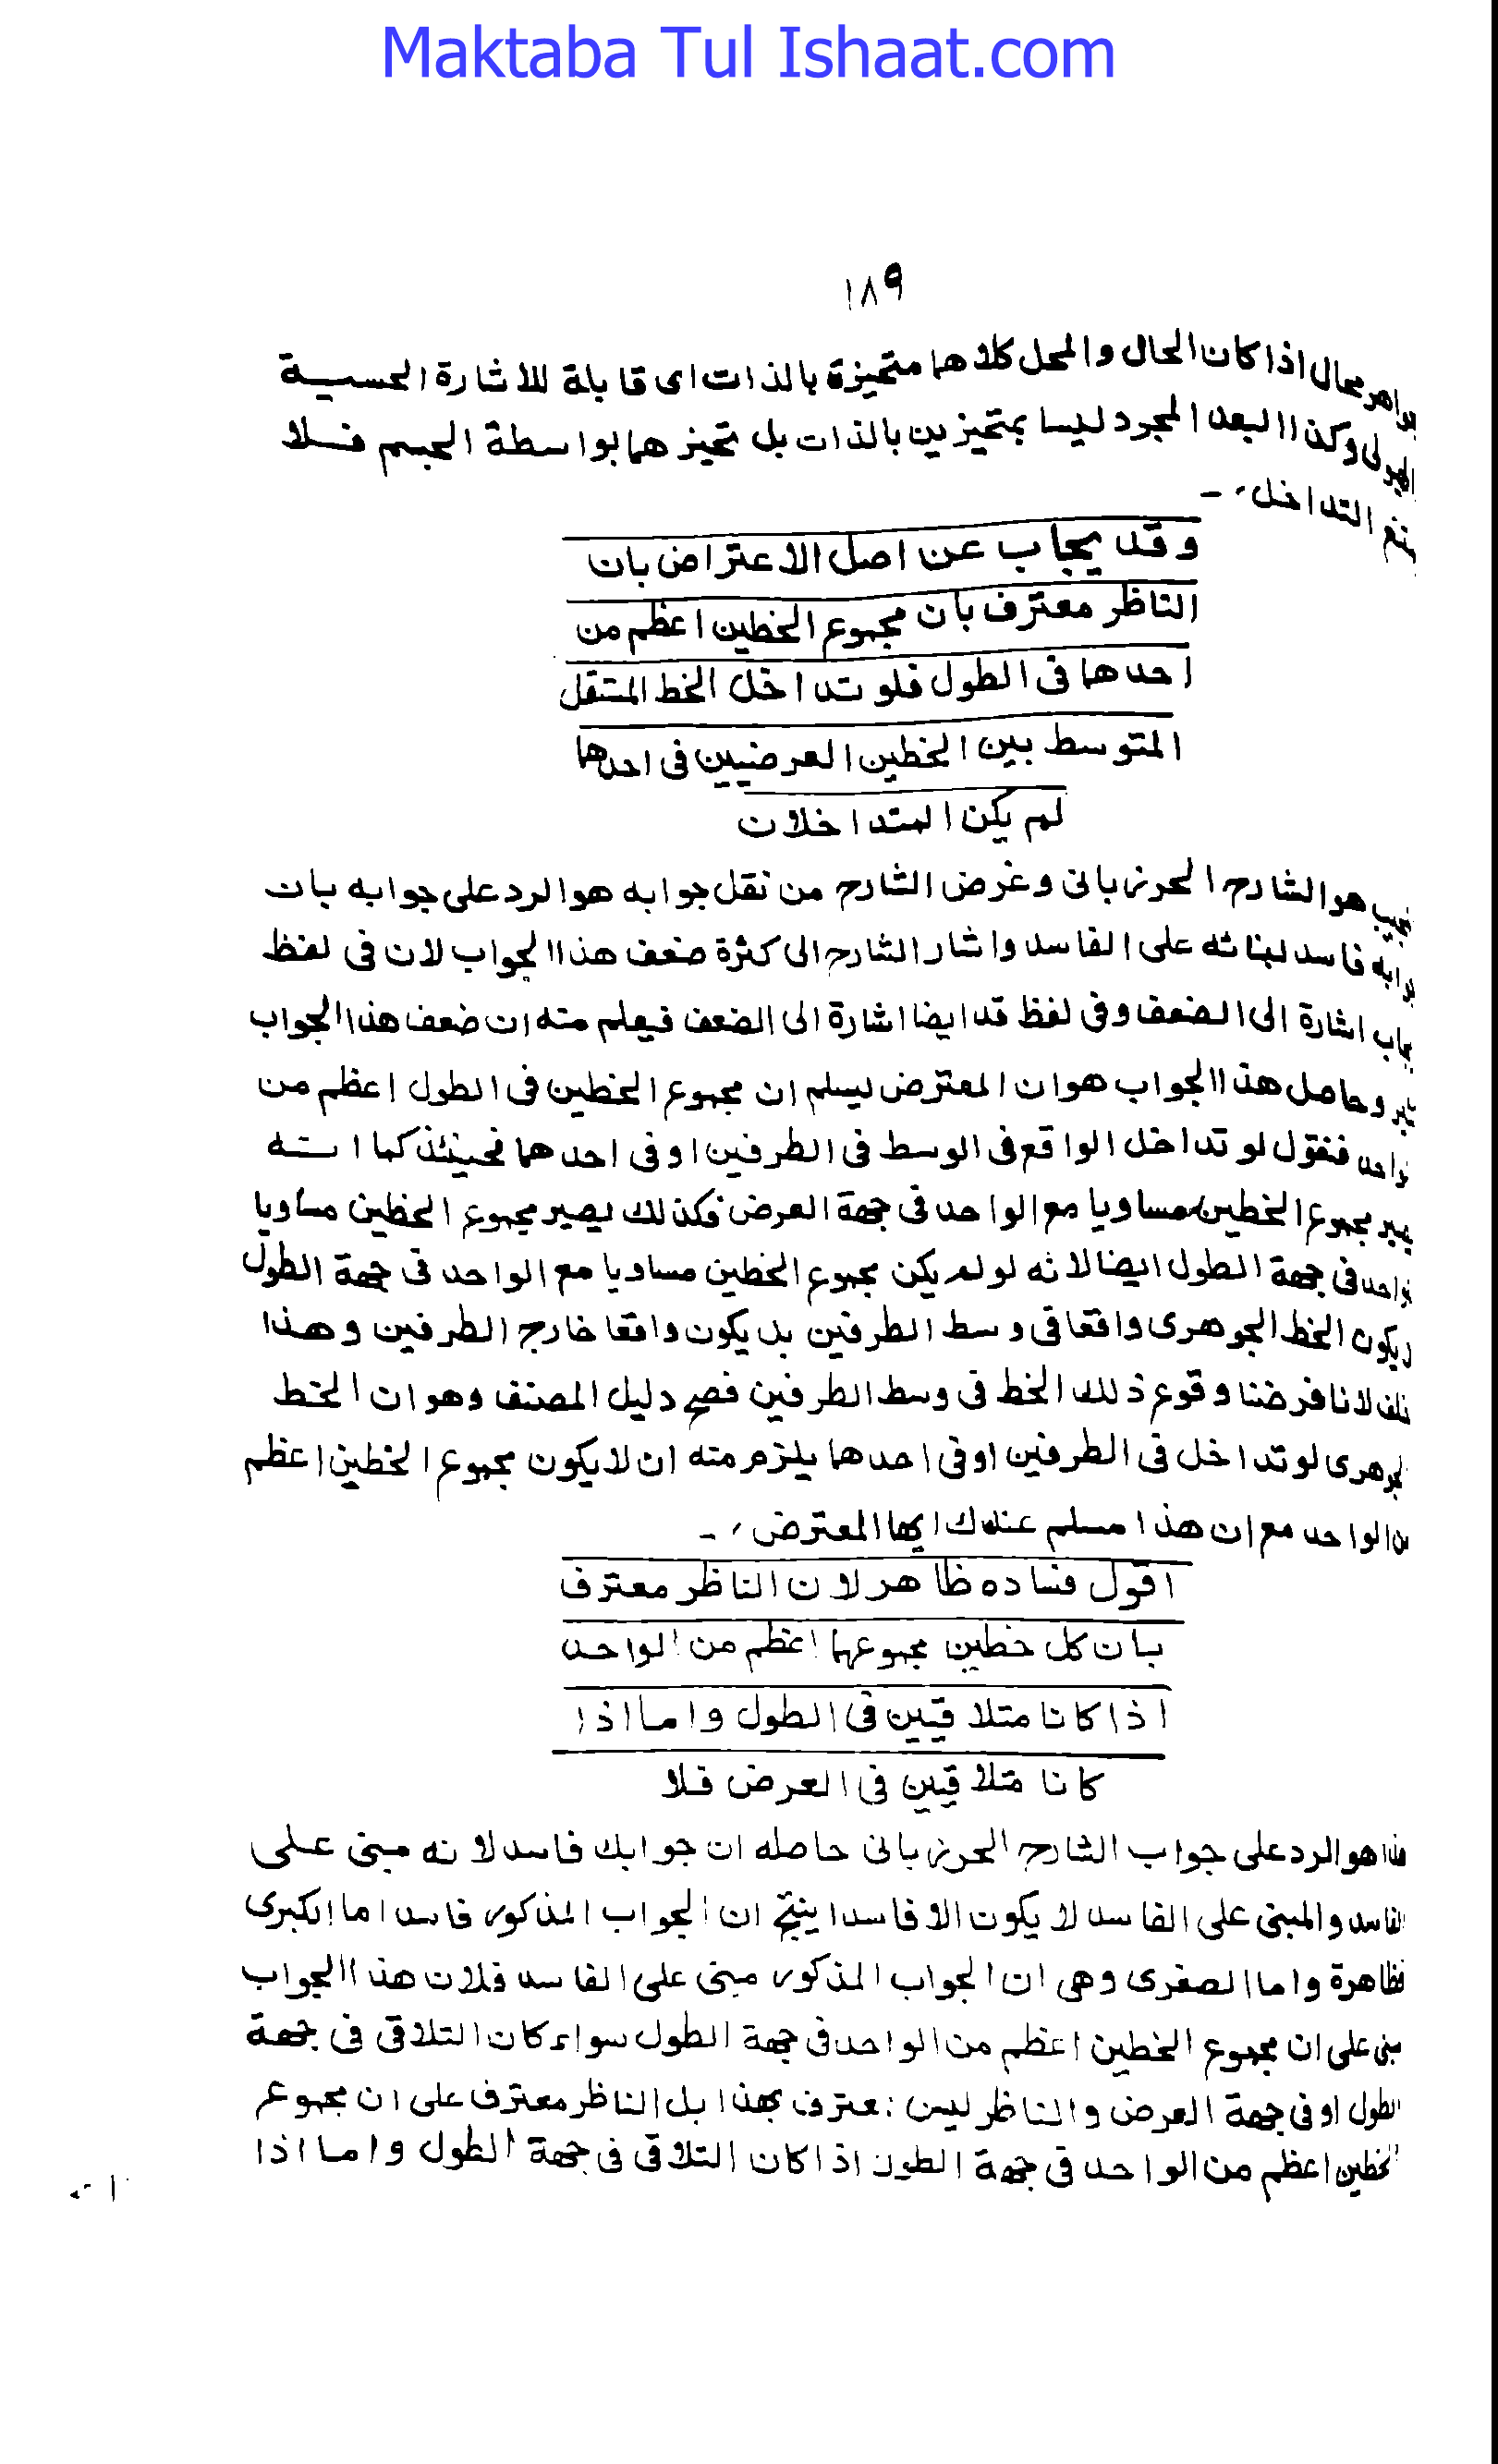 Maktaba Tul Ishaat.com
١٨٩
محال اذا كان الحال والمحل كلاهما متحيزة بالذات اى قابلة للاشارة الحسية
وكذا البعد المجرد ليسا بمتحيزين بالذات بل تحيزهما بواسطة الجسم فلا
التداخل ـ
وقد يجاب عن اصل الاعتراض بان
الناظر معترف بان مجموع الخطين اعظم من
احدهما فى الطول فلو تداخل الخط المستقل
المتوسط بين الخطين العرضيين فى احدهما
لم يكن المتداخلان
هو الشارح الحرزبانى وغرض الشارح من نقل جوابه هو الرد على جوابه بان
فاسد لبنائه على الفاسد واشار الشارح الى كثرة ضعف هذا الجواب لان فى لفظ
اشارة الى الضعف وفى لفظ قد ايضا اشارة الى الضعف فيعلم منه ان ضعف هذا الجواب
وحاصل هذا الجواب هو ان المعترض ليسلم ان مجموع الخطين فى الطول اعظم من
فنقول لو تداخل الواقع فى الوسط فى الطرفين او فى احدهما فحينئذ كما انه
مجموع الخطين مساويا مع الواحد فى جهة العرض فكذلك يصير مجموع الخطين مساويا
فى جهة الطول ايضا لانه لو لم يكن مجموع الخطين مساويا مع الواحد فى جهة الطول
يكون الخط الجوهرى واقعا فى وسط الطرفين بل يكون واقعا خارج الطرفين وهذا
لانا فرضنا وقوع ذلك الخط فى وسط الطرفين فصح دليل المصنف وهو ان الخط
لو تداخل فى الطرفين او فى احدهما يلزم منه ان لا يكون مجموع الخطين اعظم
الواحد مع ان هذا مسلم عندك ايها المعترض ـ
اقول فساده ظاهر لان الناظر معترف
بان كل خطين مجموعهما اعظم من الواحد
اذا كانا متلاقيين فى الطول واما اذا
كانا متلاقيين فى العرض فلا
هذا هو الرد على جواب الشارح الحرزبانى حاصله ان جوابك فاسد لانه مبنى على
الفاسد والمبنى على الفاسد لا يكون الا فاسدا ينتج ان الجواب المذكور فاسد اما الكبرى
فظاهرة واما الصغرى وهى ان الجواب المذكور مبنى على الفاسد فلان هذا الجواب
مبنى على ان مجموع الخطين اعظم من الواحد فى جهة الطول سواء كان التلاقى فى جهة
الطول او فى جهة العرض والناظر ليس بمعترف بهذا بل الناظر معترف على ان مجموع
الخطين اعظم من الواحد فى جهة الطول اذا كان التلاقى فى جهة الطول واما اذا